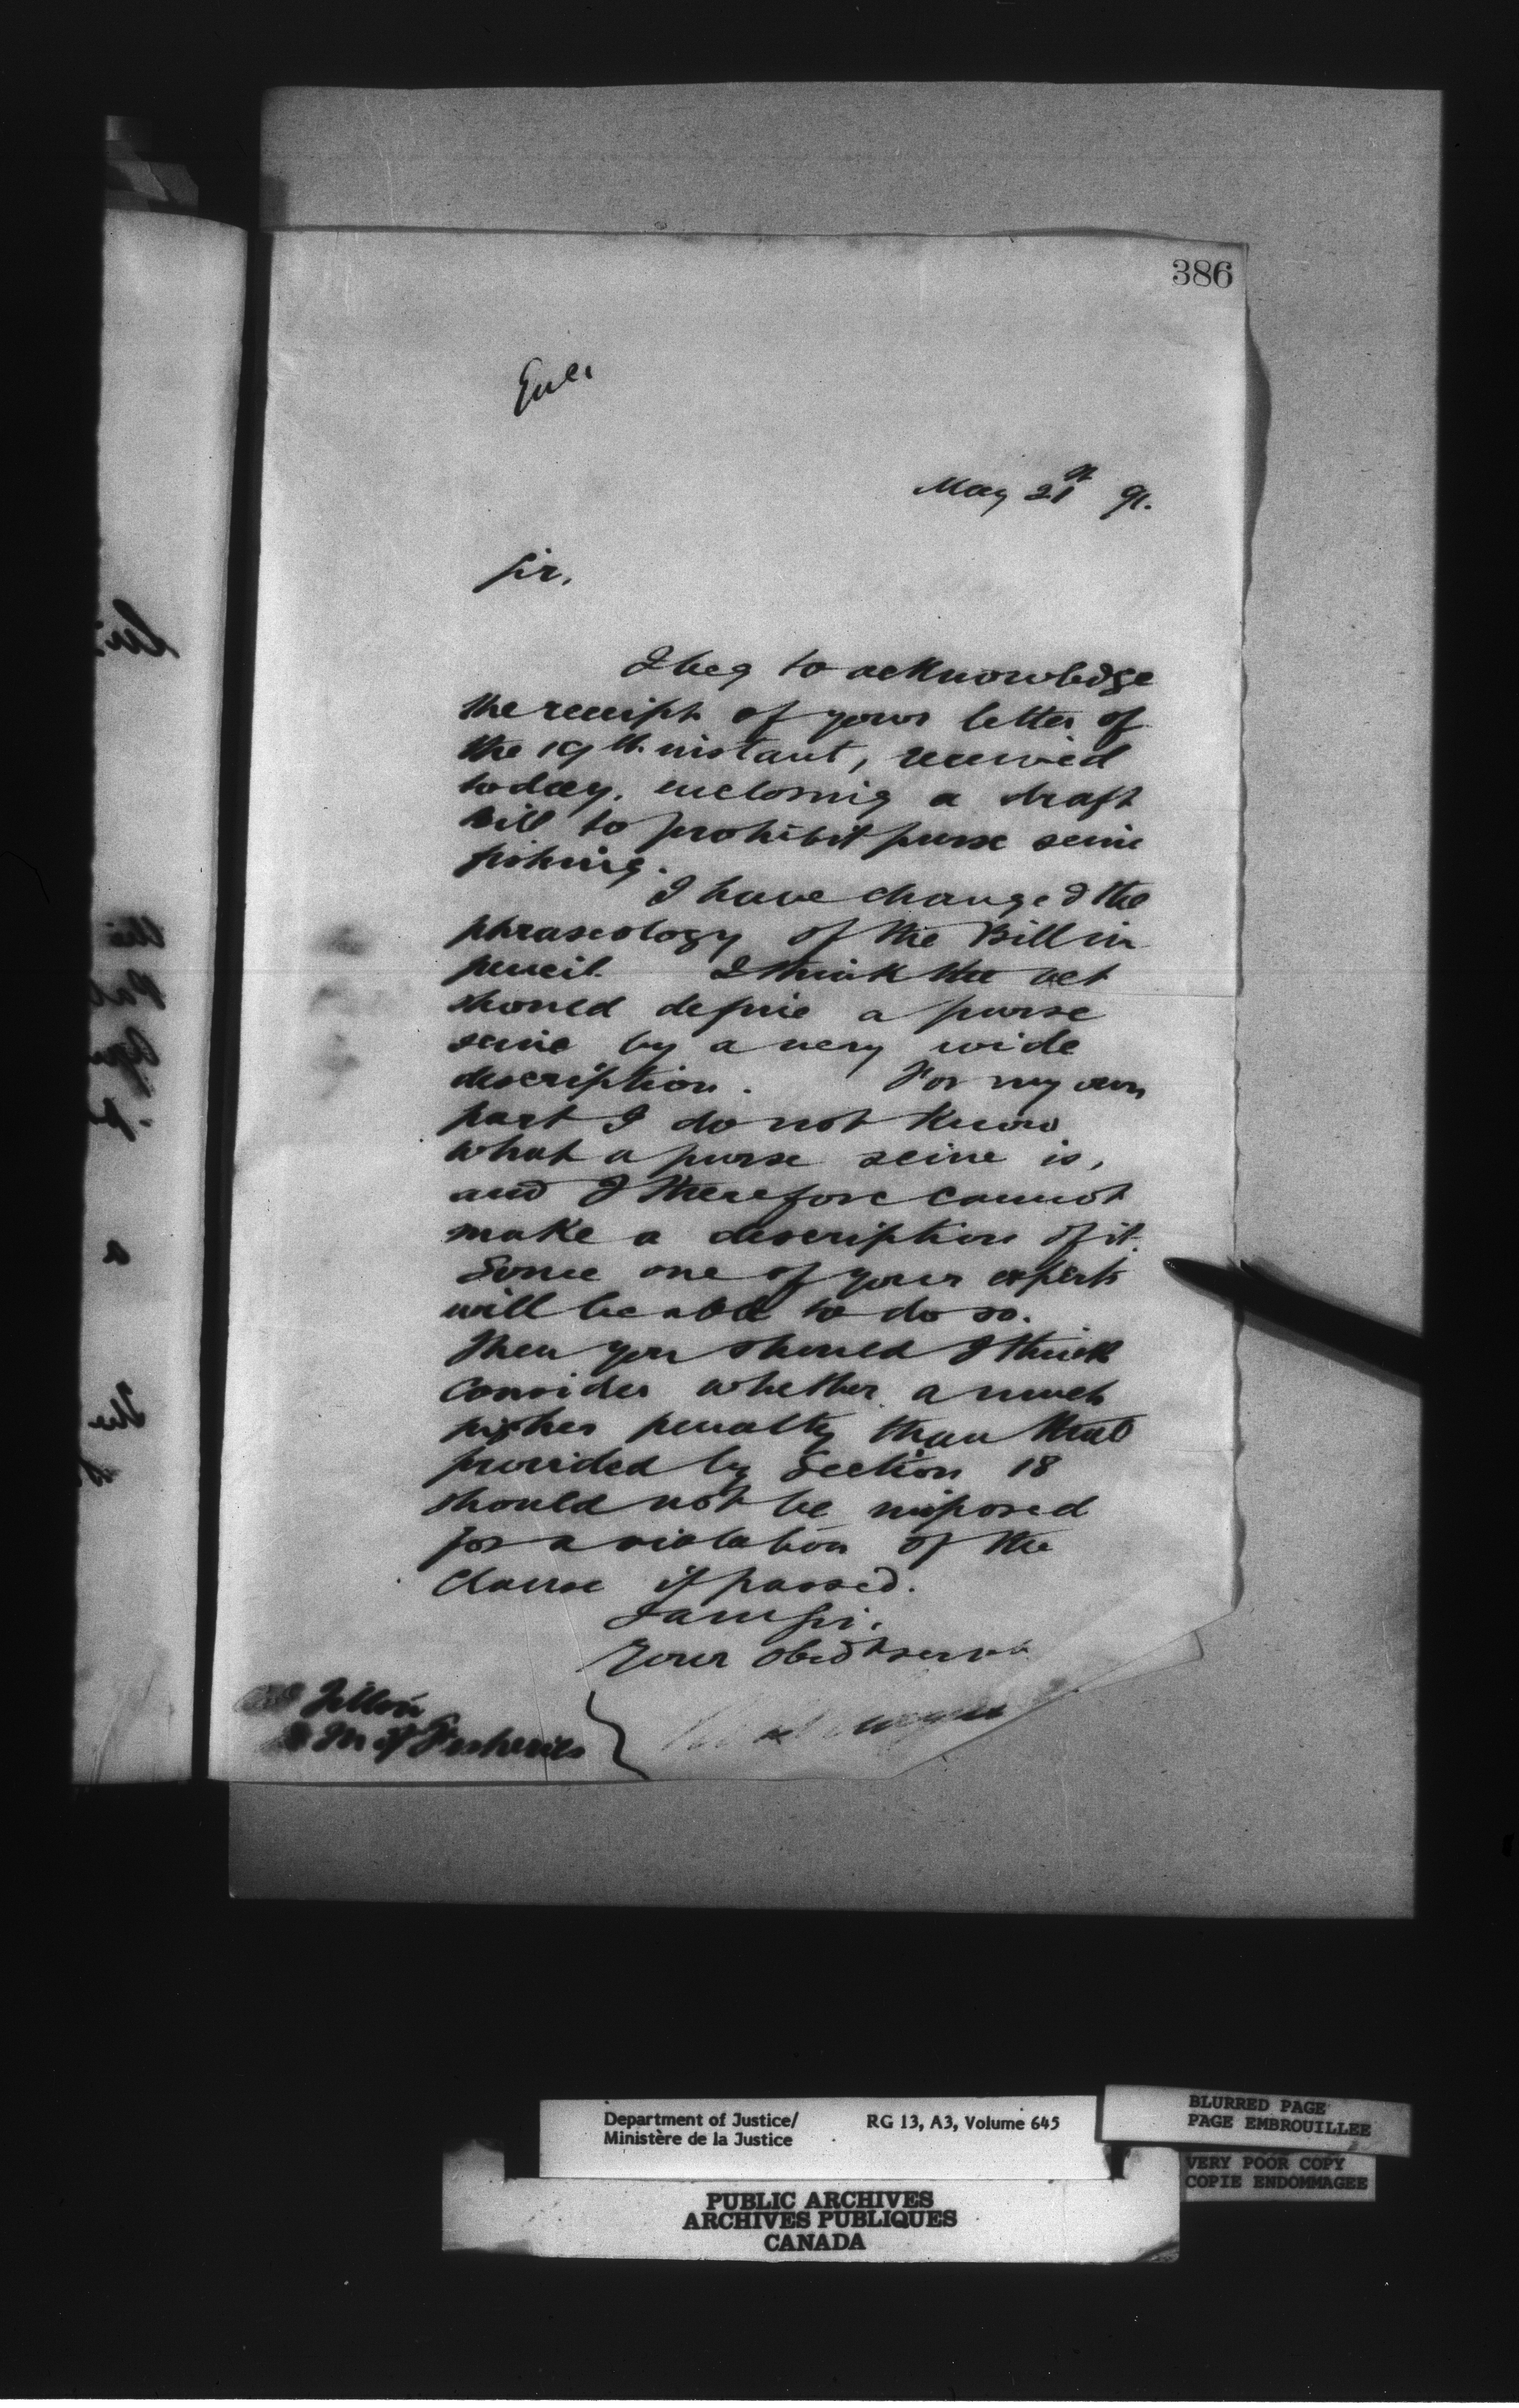 386
Encl
May 21st 91.
Sir,
I beg to acknowledge
the receipt of your letter of
the 19th instant, received
today, enclosing a draft
bill to prohibit purse seine
fishing.
I have changed the
phraseology of the Bill in
pencil. I think the act
should define a purse
seine by a very wide
description. For my own
part I do not know
what a purse seine is,
and I therefore cannot
make a description of it.
Some one of your experts
will be able to do so.
Then you should I think
consider whether a much
higher penalty than that
provided by Section 18
should not be imposed
for a violation of the
clause if passed.
I am Sir,
Your obedt servt
Tilton
D M of Fisheries
Department of Justice/ RG 13, A3, Volume 645
Ministère de la Justice
BLURRED PAGE
PAGE EMBROUILLEE
VERY POOR COPY
COPIE ENDOMMAGEE
PUBLIC ARCHIVES
ARCHIVES PUBLIQUES
CANADA